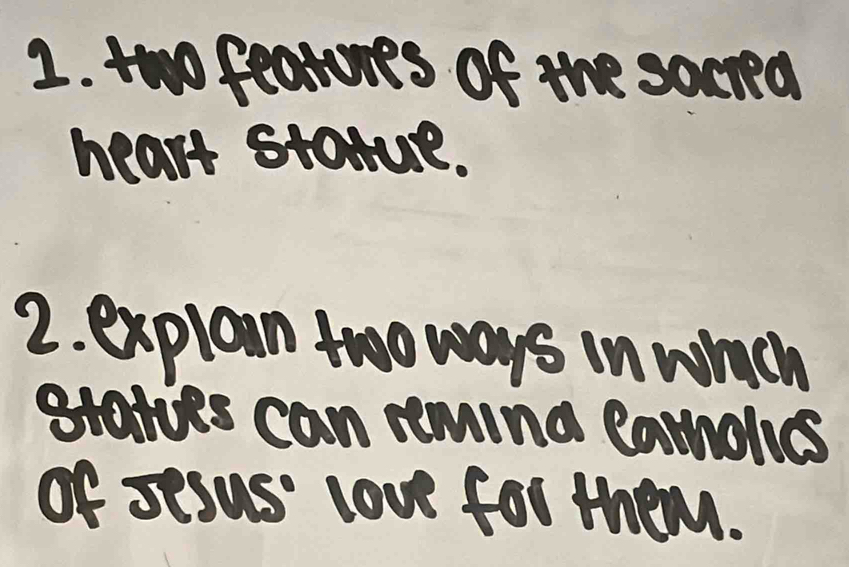 1. two features of the sacred
heart statue.
2. explain two ways in which
statues can remind catholics
of Jesus' love for them.